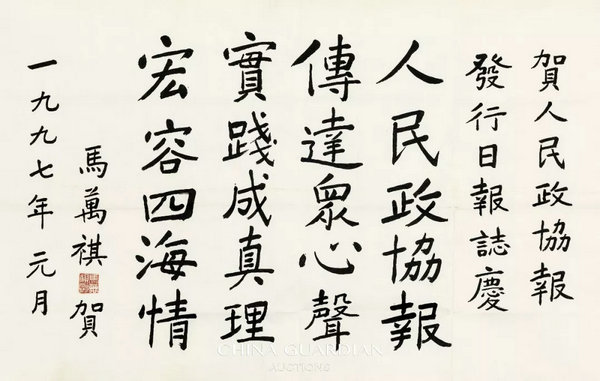 賀人民政協報
發行日報誌慶
人民政協報
傳達眾心聲
實踐成真理
宏容四海情
馬萬祺賀
一九九七年元月
CHINA GUARDIAN
AUCTIONS